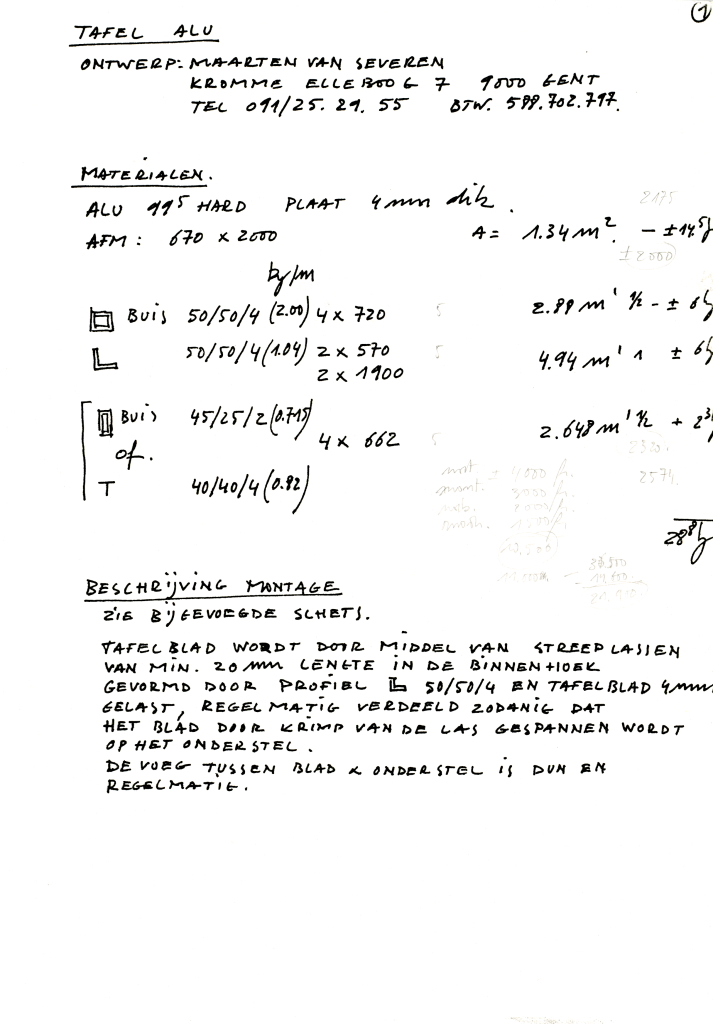 1
TAFEL ALU
ONTWERP: MAARTEN VAN SEVEREN
KROMME ELLEBOOG 7 9000 GENT
TEL 091/25.29.55 BTW. 599.702.797.
MATERIALEN.
ALU 99⁵ HARD PLAAT 4mm dik.
2175
AFM: 670 x 2000 A = 1.34 m². - ±14.5
± 2000
kg/m
BUIS 50/50/4 (2.00) 4 x 720 2.89 m' ½ - ± 6
L 50/50/4 (1.04) 2 x 570 4.94 m' 1 ± 6
2 x 1900
BUIS 45/25/2 (0.715)
4 x 662 2.648 m' ½ + 2
of.
T 40/40/4 (0.92)
2574.
28⁸
BESCHRIJVING MONTAGE
ZIE BIJGEVOEGDE SCHETS.
TAFELBLAD WORDT DOOR MIDDEL VAN STREEPLASSEN
VAN MIN. 20mm LENGTE IN DE BINNENHOEK
GEVORMD DOOR PROFIEL L 50/50/4 EN TAFELBLAD 4mm
GELAST, REGELMATIG VERDEELD ZODANIG DAT
HET BLAD DOOR KRIMP VAN DE LAS GESPANNEN WORDT
OP HET ONDERSTEL.
DE VOEG TUSSEN BLAD & ONDERSTEL IS DUN EN
REGELMATIG.